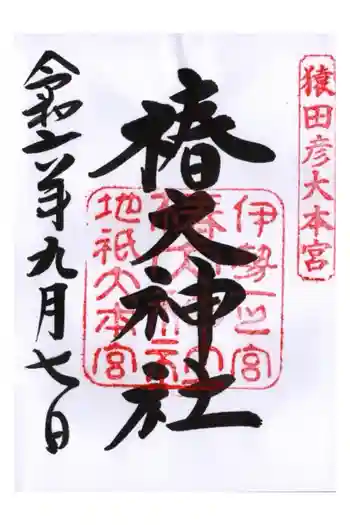 猿田彦大本宮
椿大神社
伊勢一之宮
地祇大本宮
令和六年九月七日